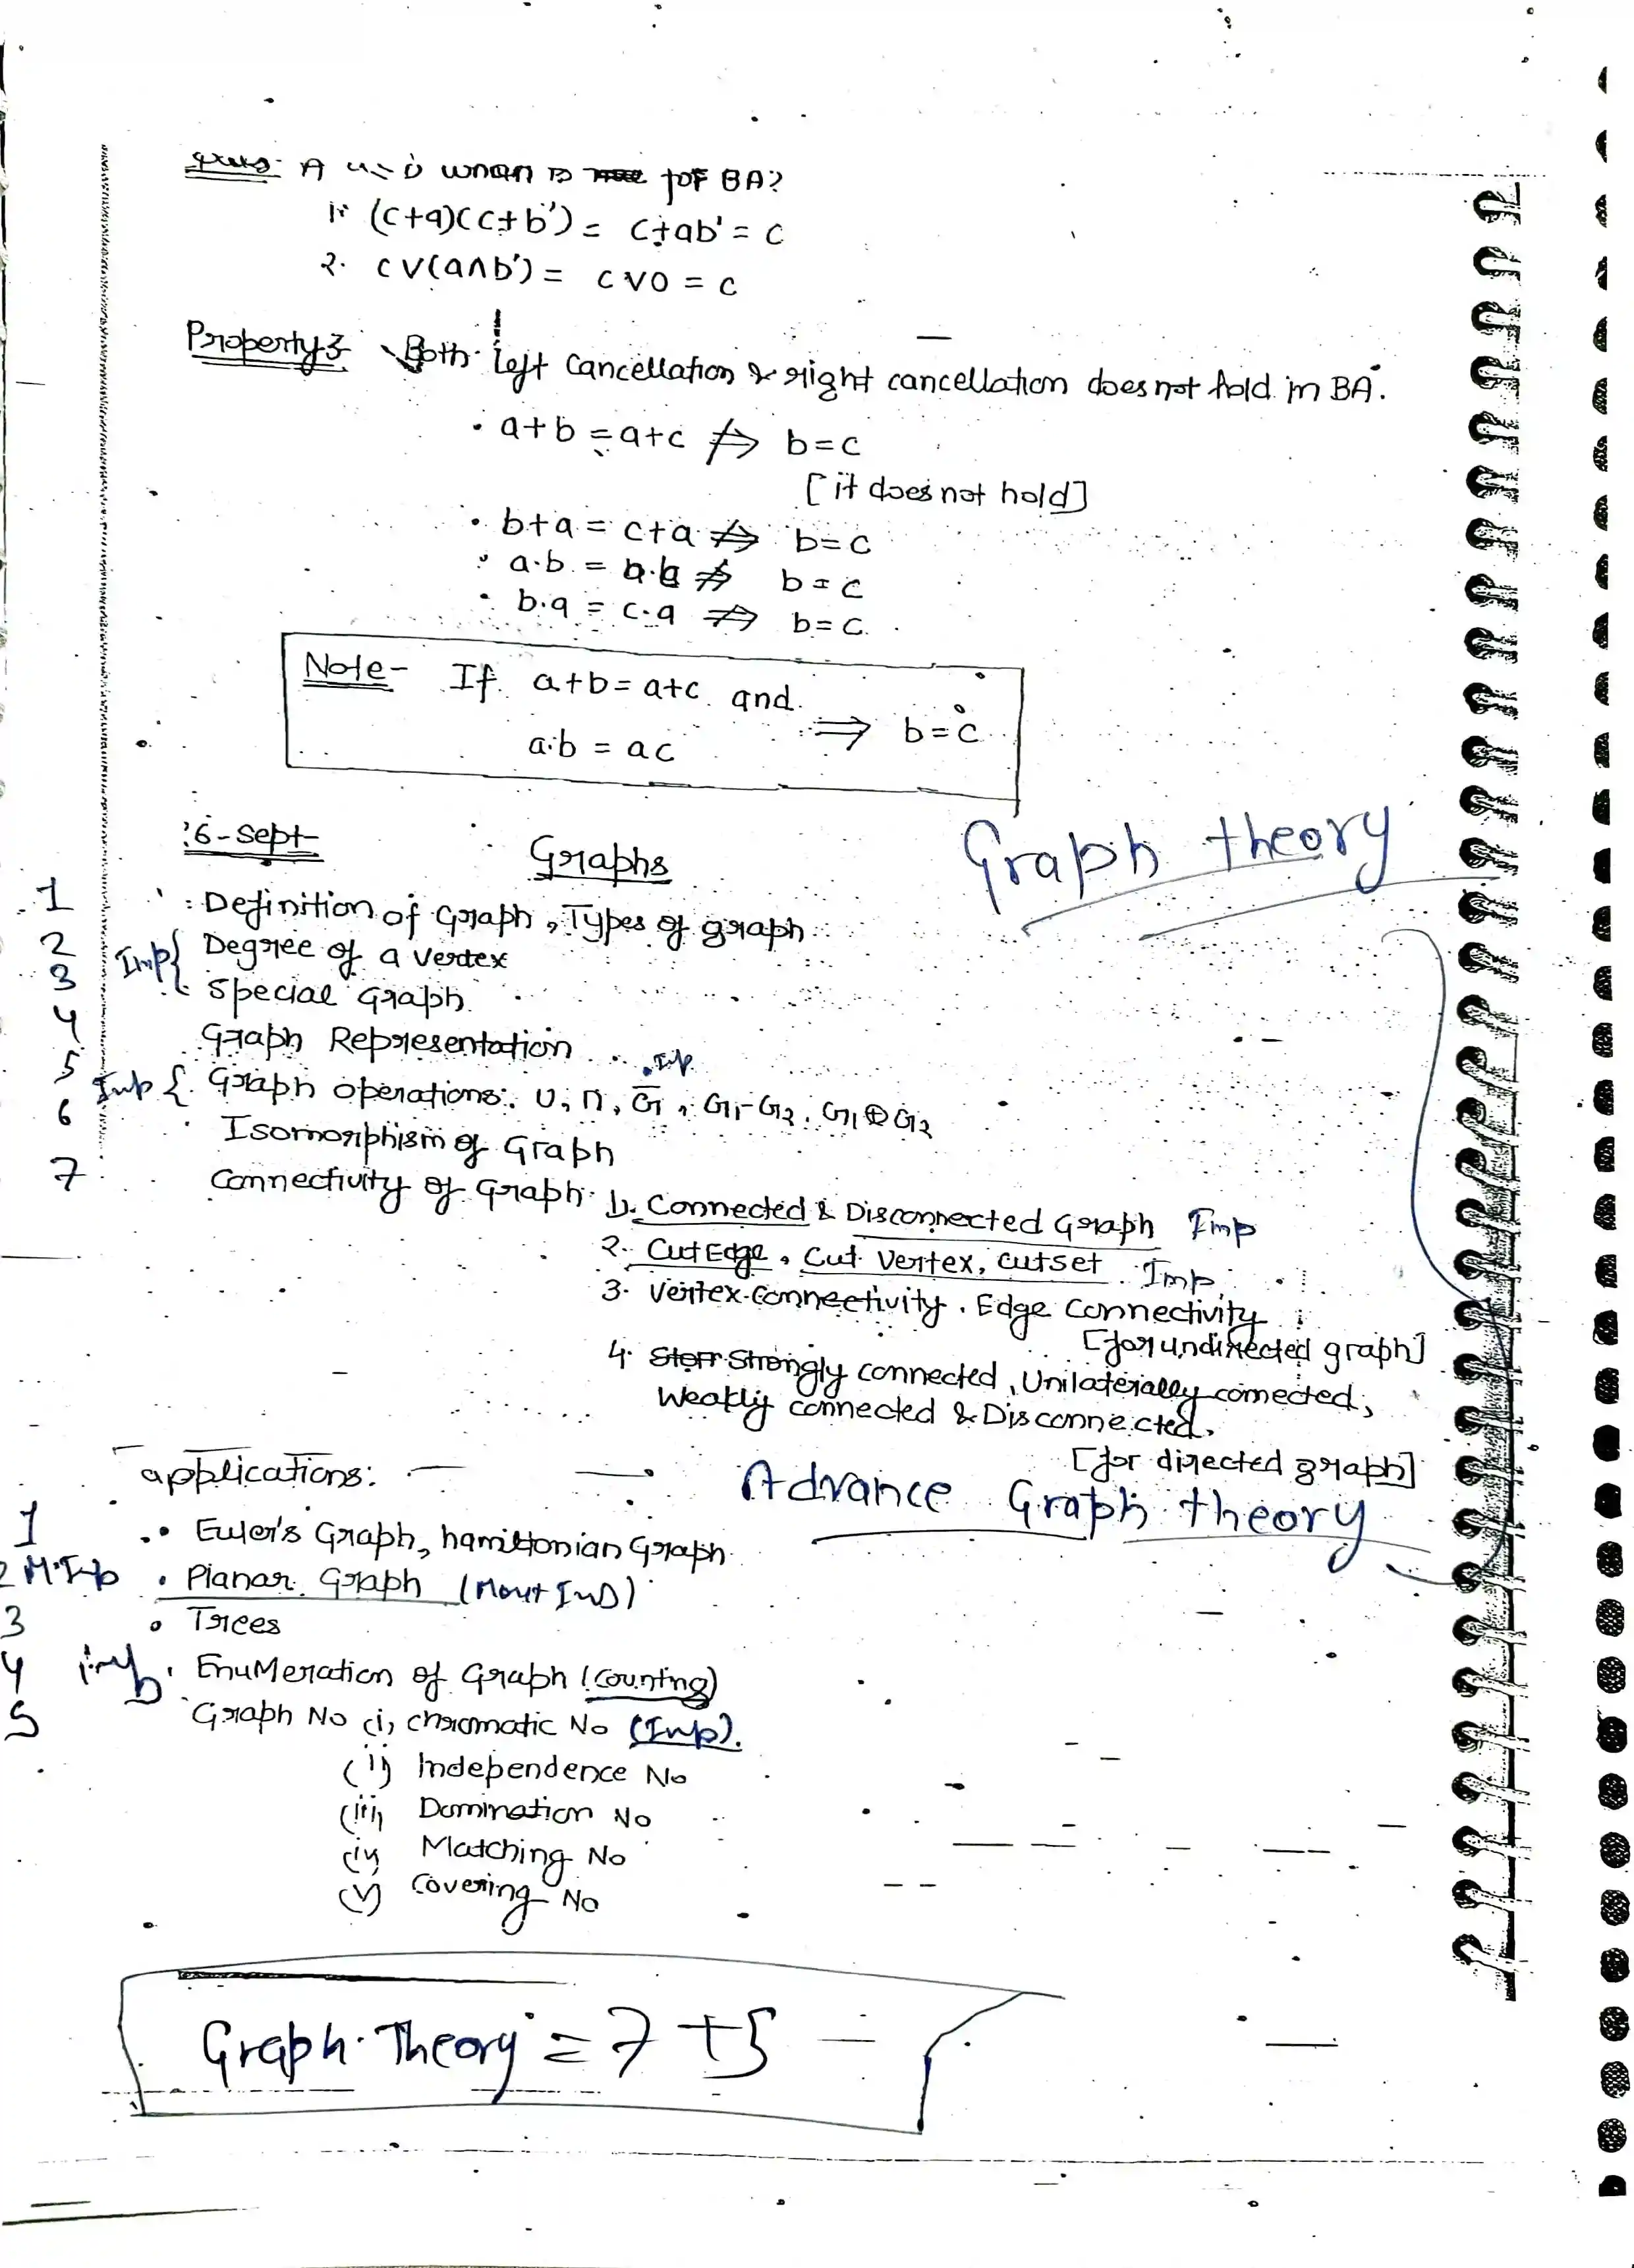 Ques: A when is for BA?
1. (c+a)(c+b') = c+ab' = c
2. c∨(a∧b') = c∨0 = c
Property 3 Both left cancellation & right cancellation does not hold in BA.
• a+b = a+c ⇏ b=c
[it does not hold]
• b+a = c+a ⇏ b=c
• a·b = ⇏ b=c
• b·a = c·a ⇏ b=c.
Note- If a+b = a+c and
a·b = ac ⇒ b=c
6-Sept
Graphs
Graph theory
1 Definition of Graph, Types of graph
2 Imp{ Degree of a vertex
3 Special Graph
4 Graph Representation
5 Imp {. Graph operations: ∪, ∩, G̅, G1-G2, G1⊕G2 Imp
6 Isomorphism of Graph
7 Connectivity of Graph 1. Connected & Disconnected Graph Imp
2. Cut Edge, Cut Vertex, cutset Imp
3. Vertex-Connectivity, Edge Connectivity
[for undirected graph]
4. Strongly connected, Unilaterally connected,
Weakly connected & Disconnected.
[for directed graph]
applications:
Advance Graph theory
1 • Euler's Graph, hamiltonian Graph
2 M.Imp • Planar Graph (Most Imp)
3 • Trees
4 imp • EnuMeration of Graph (counting)
5 Graph No (i) chromatic No (Imp).
(ii) Independence No
(iii) Domination No
(iv) Matching No
(v) Covering No
Graph Theory = 7 + 5